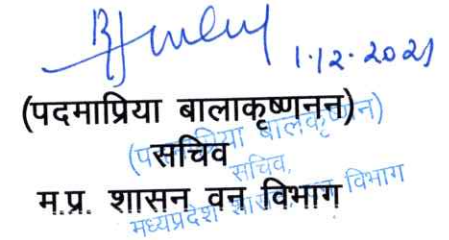 1.12.2021
(पदमाप्रिया बालाकृष्णनन)
सचिव
म.प्र. शासन वन विभाग
सचिव,
मध्यप्रदेश शासन, वन विभाग